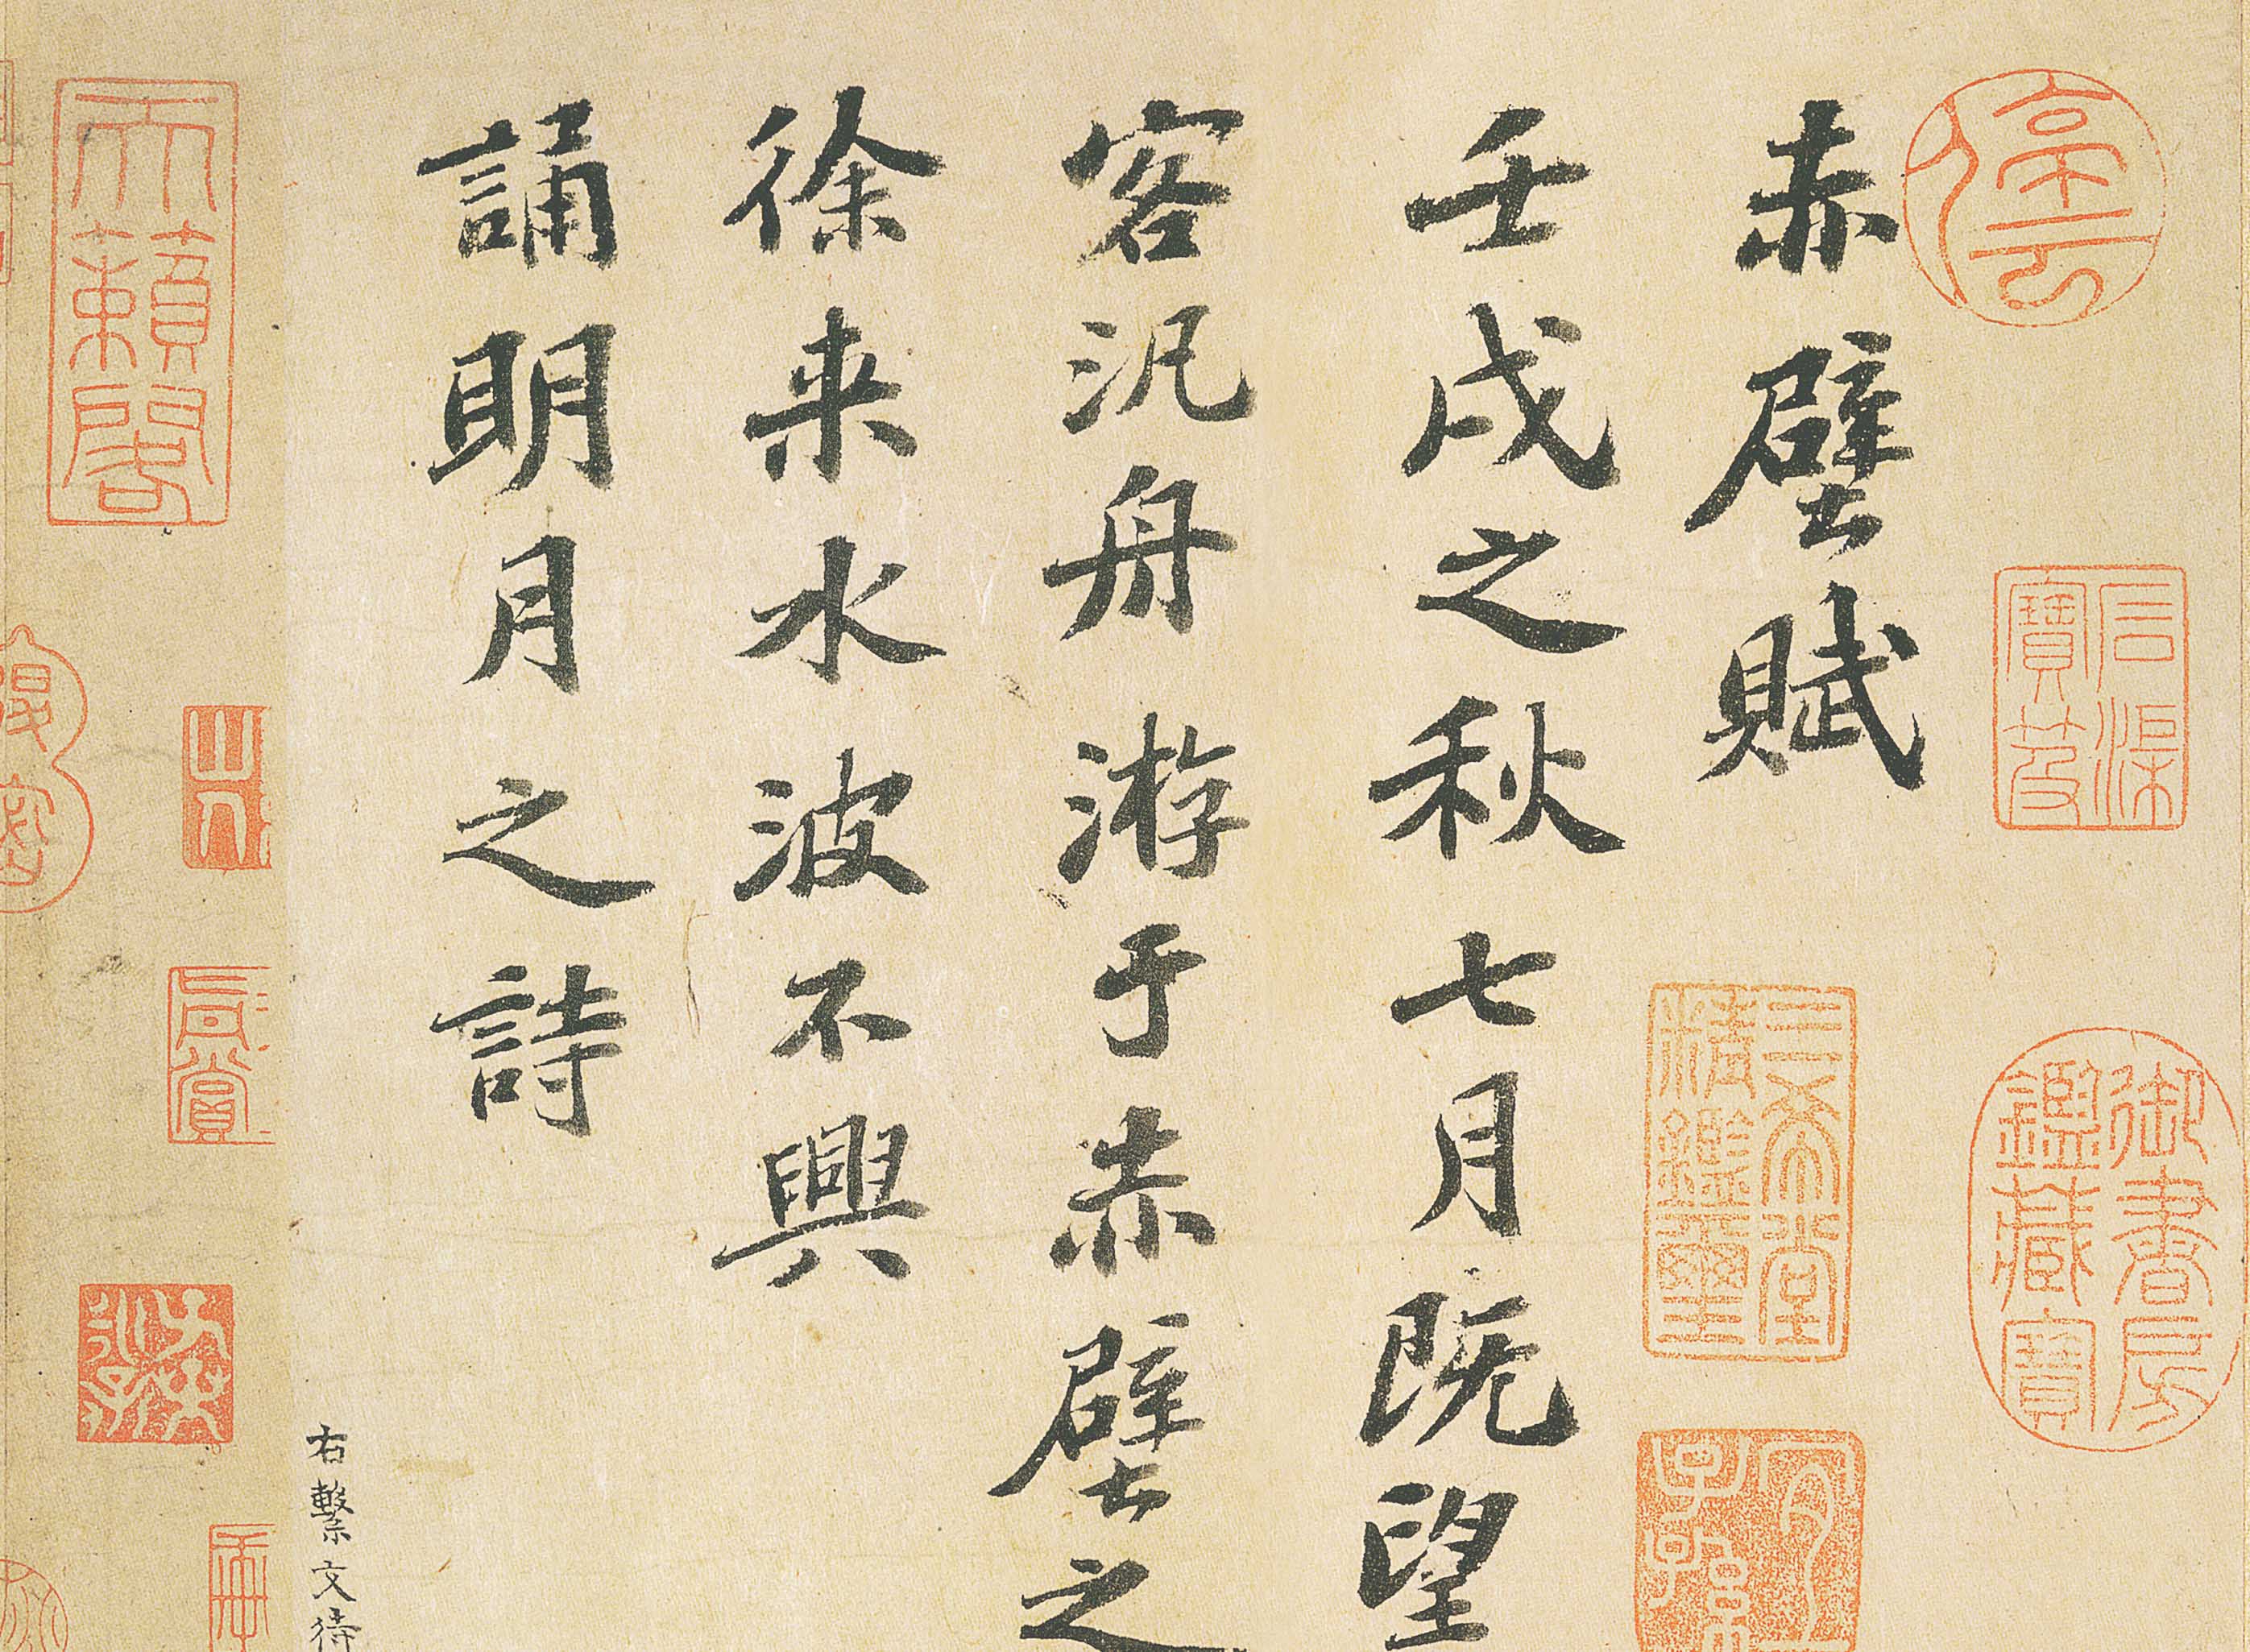 停雲
石渠寶笈
御書房鑑藏寶
赤壁賦
三希堂精鑑璽
宜子孫
壬戌之秋七月既望
客汎舟游于赤壁之
徐来水波不興
誦明月之詩
右繫文待
天籟閣